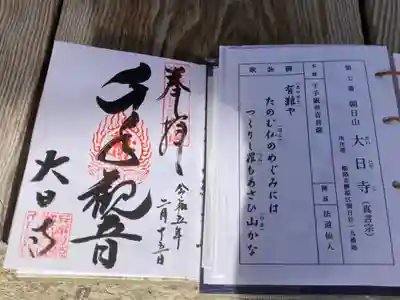 奉拝
千手観音
大日寺
令和五年
二月十五日
第七番 朝日山 大日寺 (真言宗)
本尊 千手観世音菩薩 開基 法道仙人
御詠歌
有難や
たのむ仏のめぐみには
つくりし罪もあさひ山かな